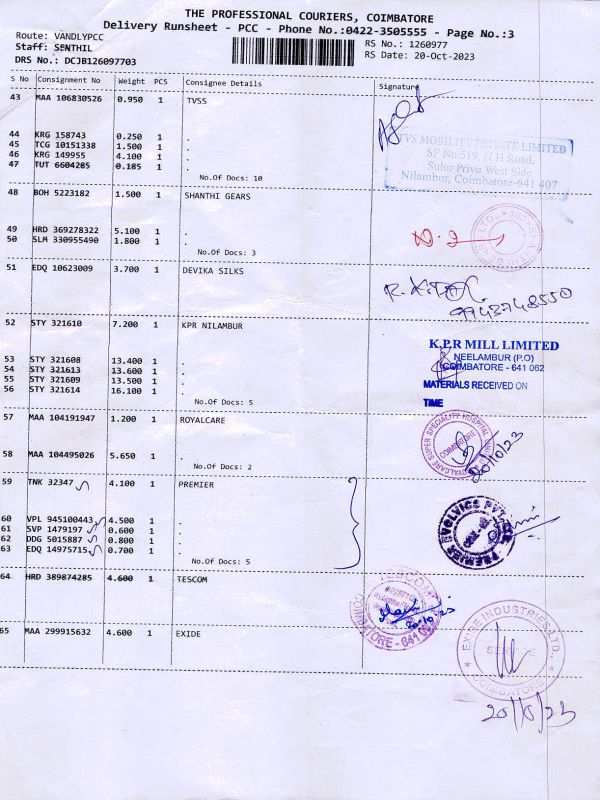 THE PROFESSIONAL COURIERS, COIMBATORE
Delivery Runsheet - PCC - Phone No.:0422-3505555 - Page No.:3
Route: VANDLYPCC
RS No.: 1260977
Staff: SENTHIL
RS Date: 20-Oct-2023
DRS No.: DCJB126097703
S No Consignment No Weight PCS Consignee Details Signature
43 MAA 106830526 0.950 1 TVSS
44 KRG 158743 0.250 1 .
45 TCG 10151338 1.500 1 .
46 KRG 149955 4.100 1 .
47 TUT 6604285 0.185 1 .
No.Of Docs: 10
TVS MOBILITY PRIVATE LIMITED
SF No.519, N.H Road,
Sulur Privu West Side
Nilambur, Coimbatore-641 407
48 BOH 5223182 1.500 1 SHANTHI GEARS
49 HRD 369278322 5.100 1 .
50 SLM 330955490 1.800 1 .
No.Of Docs: 3
51 EDQ 10623009 3.700 1 DEVIKA SILKS
9943748550
52 STY 321610 7.200 1 KPR NILAMBUR
53 STY 321608 13.400 1 .
54 STY 321613 13.600 1 .
55 STY 321609 13.500 1 .
56 STY 321614 16.100 1 .
No.Of Docs: 5
K.P.R MILL LIMITED
NEELAMBUR (P.O)
COIMBATORE - 641 062
MATERIALS RECEIVED ON
TIME
57 MAA 104191947 1.200 1 ROYALCARE
58 MAA 104495026 5.650 1 .
No.Of Docs: 2
ROYALCARE SUPER SPECIALITY HOSPITAL
COIMBATORE
20/10/23
59 TNK 32347 4.100 1 PREMIER
60 VPL 945100443 4.500 1 .
61 SVP 1479197 0.600 1 .
62 DDG 5015887 0.800 1 .
63 EDQ 14975715 0.700 1 .
No.Of Docs: 5
PREMIER EVOLVICS PVT
64 HRD 389874285 4.600 1 TESCOM
TESCOM
COIMBATORE - 641 062
20.10.23
65 MAA 299915632 4.600 1 EXIDE
EXIDE INDUSTRIES LTD.,
SERVICE
COIMBATORE
20/10/23